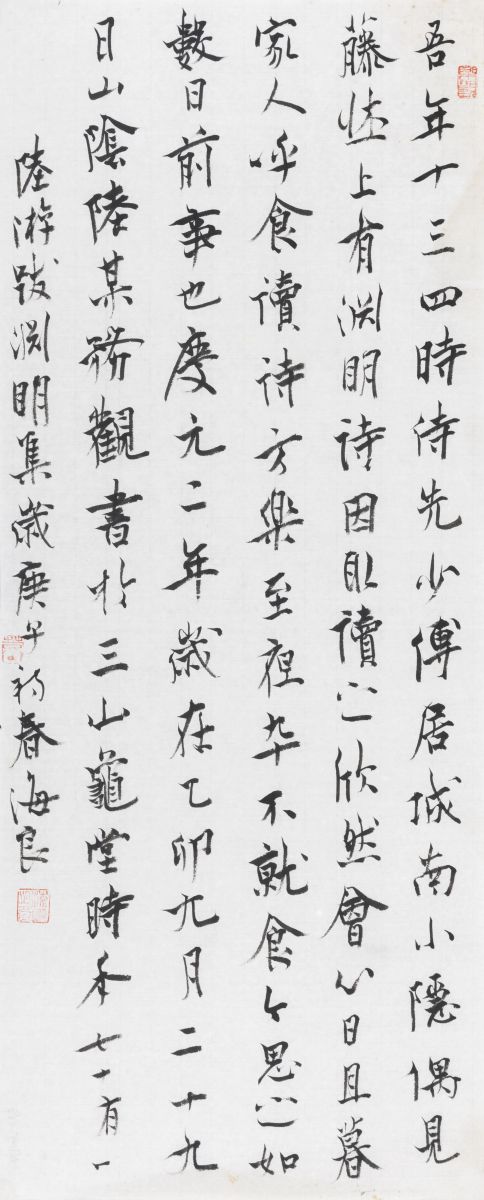 吾年十三四時侍先少傅居城南小隱偶見
藤牀上有渊明詩因取讀之欣然會心日且暮
家人呼食讀詩方樂至夜卒不就食今思之如
數日前事也慶元二年歲在乙卯九月二十九
日山陰陸某務觀書於三山龜堂時年七十有一
陸游跋渊明集歲庚午初春海良